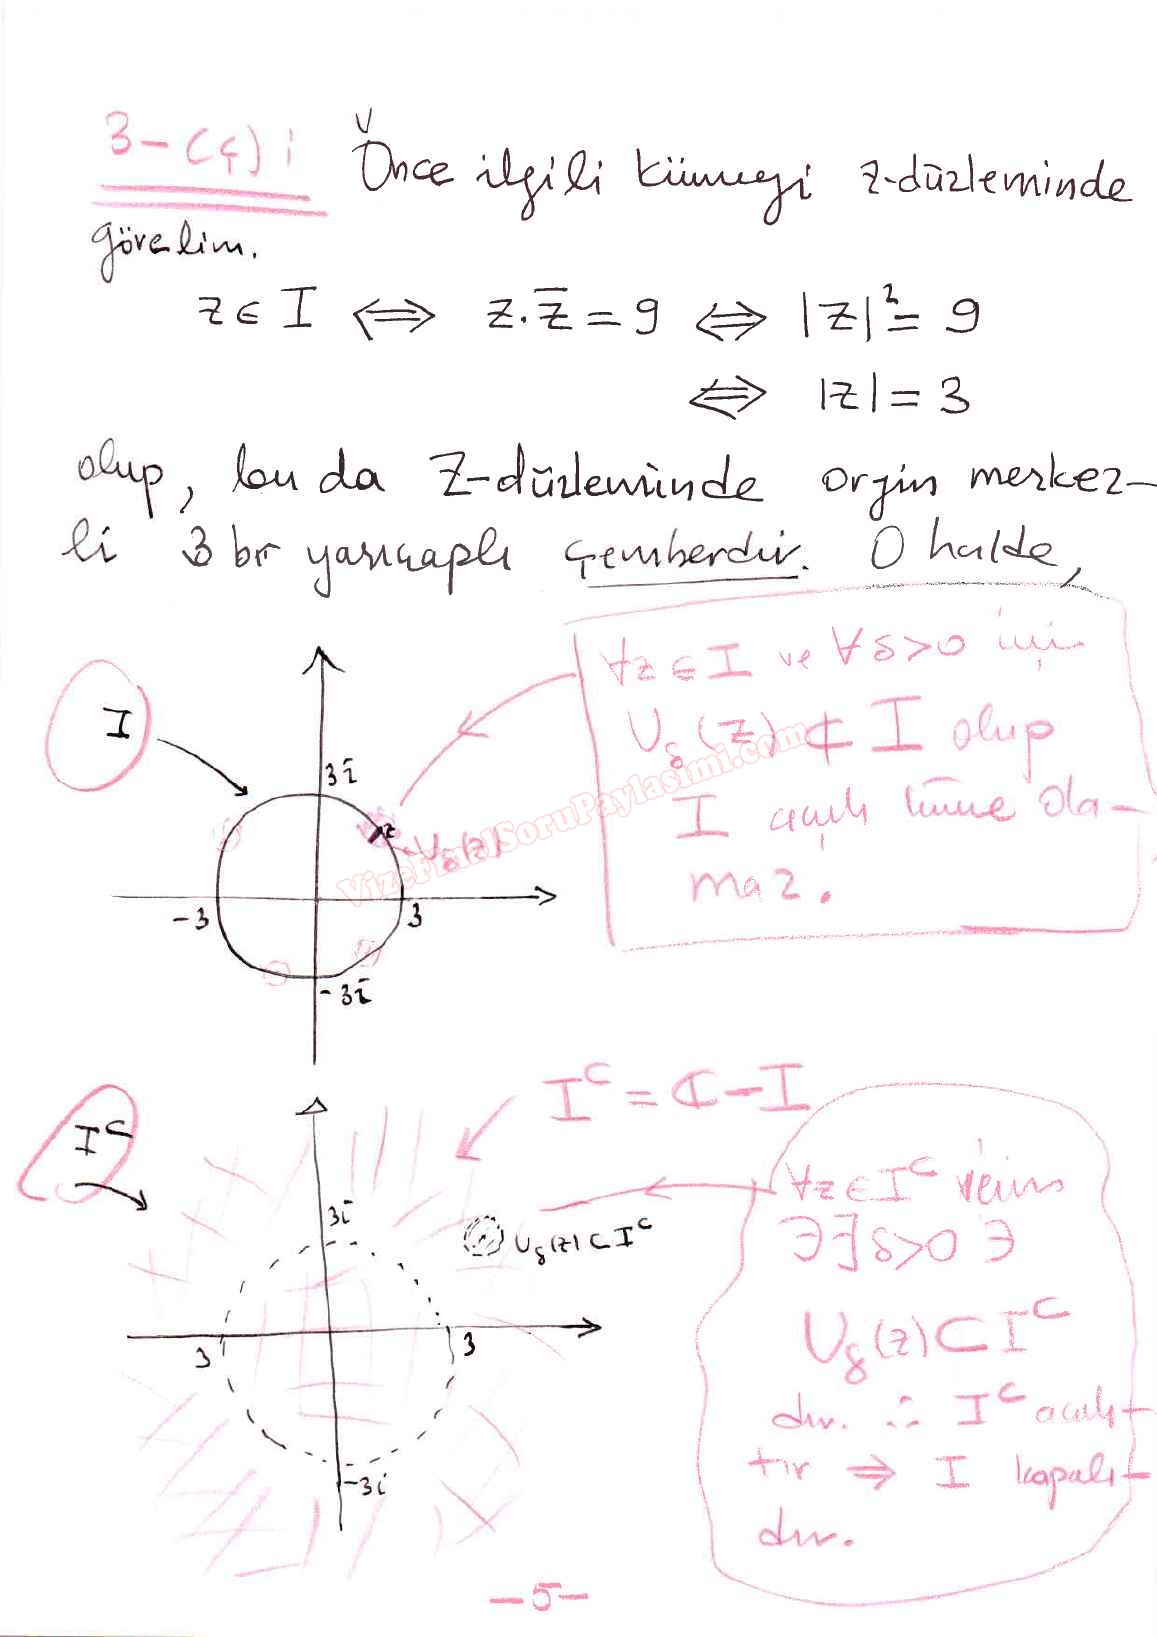 3-(ç) i
Önce ilgili kümeyi z-düzleminde
görelim.
z ∈ I ⇔ z.z̄ = 9 ⇔ |z|² = 9
⇔ |z| = 3
olup, bu da Z-düzleminde orjin merkez-
li 3 br yarıçaplı çemberdir. O halde,
∀z ∈ I ve ∀δ>0 için
U_δ(z) ⊄ I olup
I açık küme ola-
maz.
I
3i
z
U_δ(z)
-3
3
-3i
VizeFinalSoruPaylasimi.com
I^c = ℂ - I
I^c
3i
U_δ(z) ⊂ I^c
3
3
-3i
∀z ∈ I^c
∃ ∃δ>0 ∋
U_δ(z) ⊂ I^c
dır. ∴ I^c açık-
tır ⇒ I kapalı-
dır.
-5-